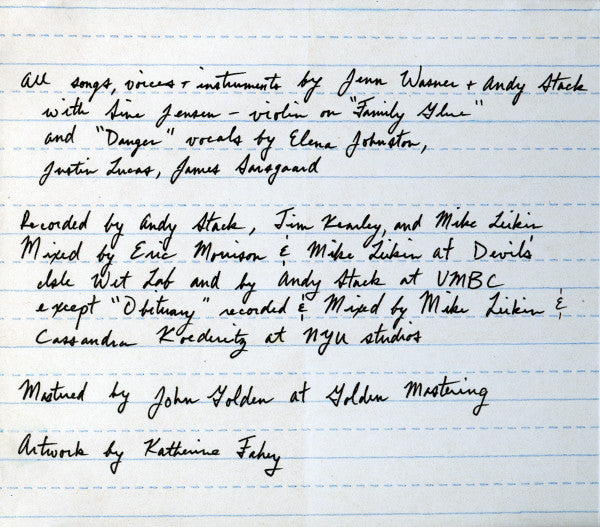 All songs, voices + instruments by Jenn Wasner + Andy Stack
with Sine Jensen - violin on "Family Glue"
and "Danger" vocals by Elena Johnston,
Justin Lucas, James Sarsgaard
Recorded by Andy Stack, Tim Kearley, and Mike Leikin
Mixed by Eric Morrison & Mike Leikin at Devil's
Isle Wet Lab and by Andy Stack at UMBC
except "Obituary" recorded & Mixed by Mike Leikin &
Cassandra at NYU studios
Mastered by John Golden at Golden Mastering
Artwork by Katherine Fahey